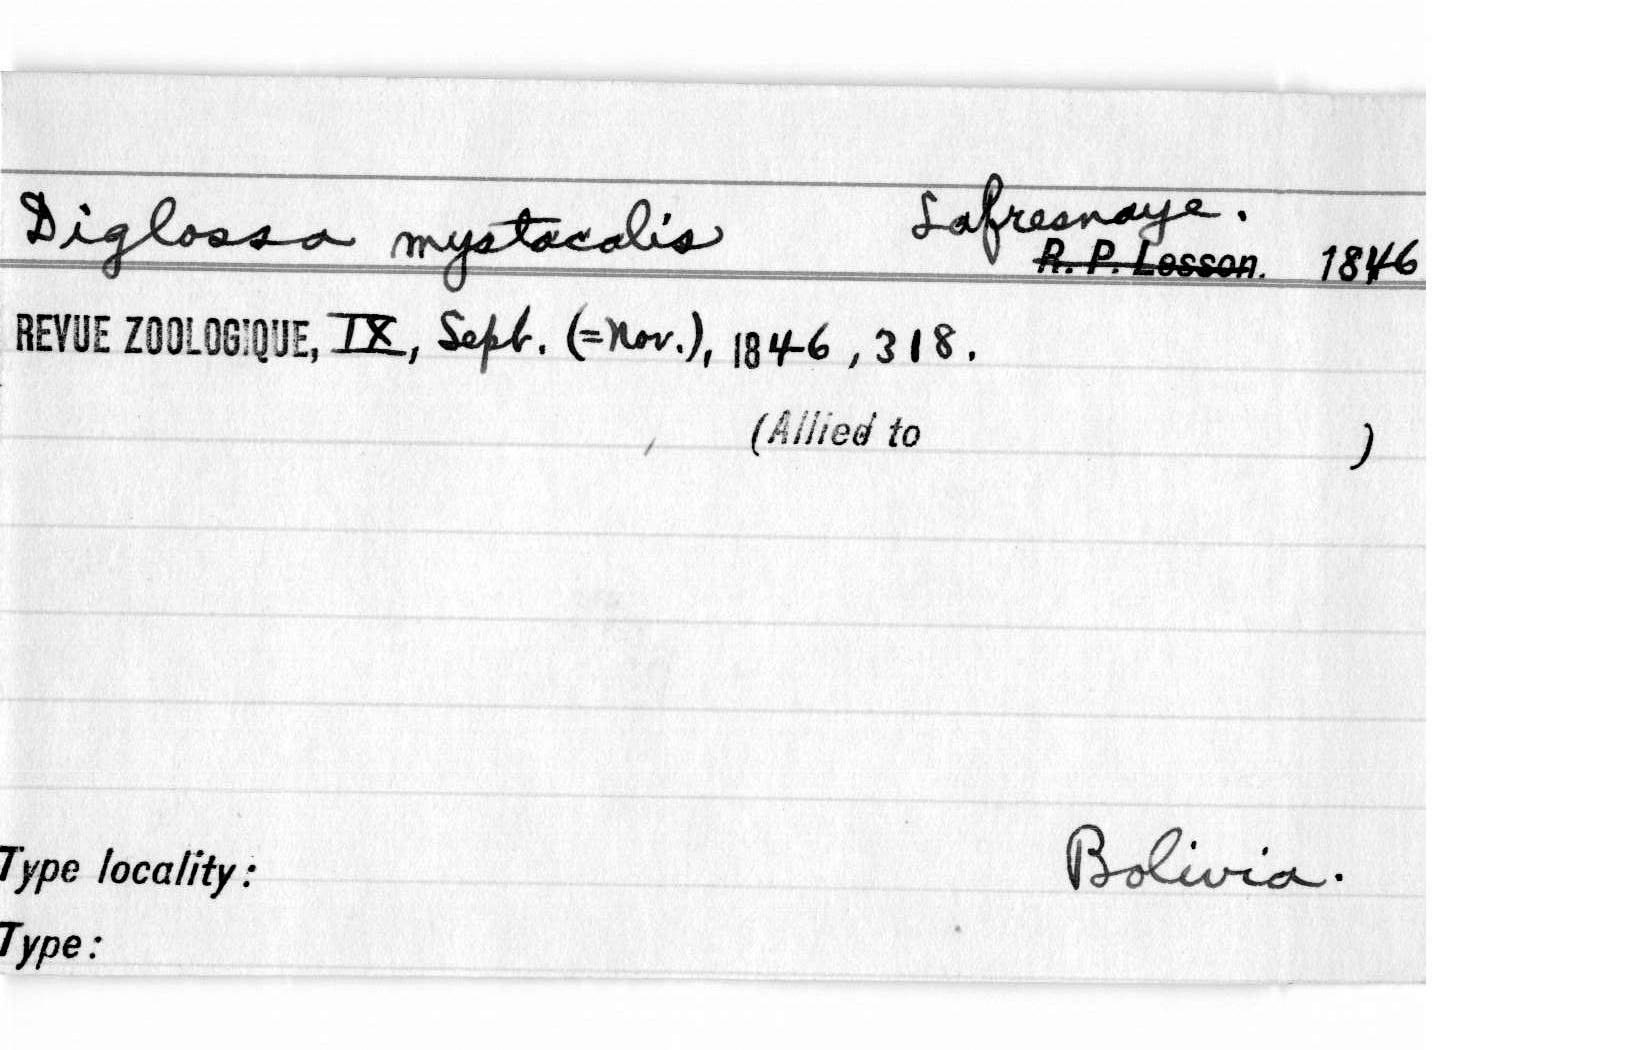 Diglossa mystacalis Lafresnaye.
R. P. Lesson. 1846
REVUE ZOOLOGIQUE, IX, Sept. (=Nov.), 1846, 318.
(Allied to )
Type locality: Bolivia.
Type: